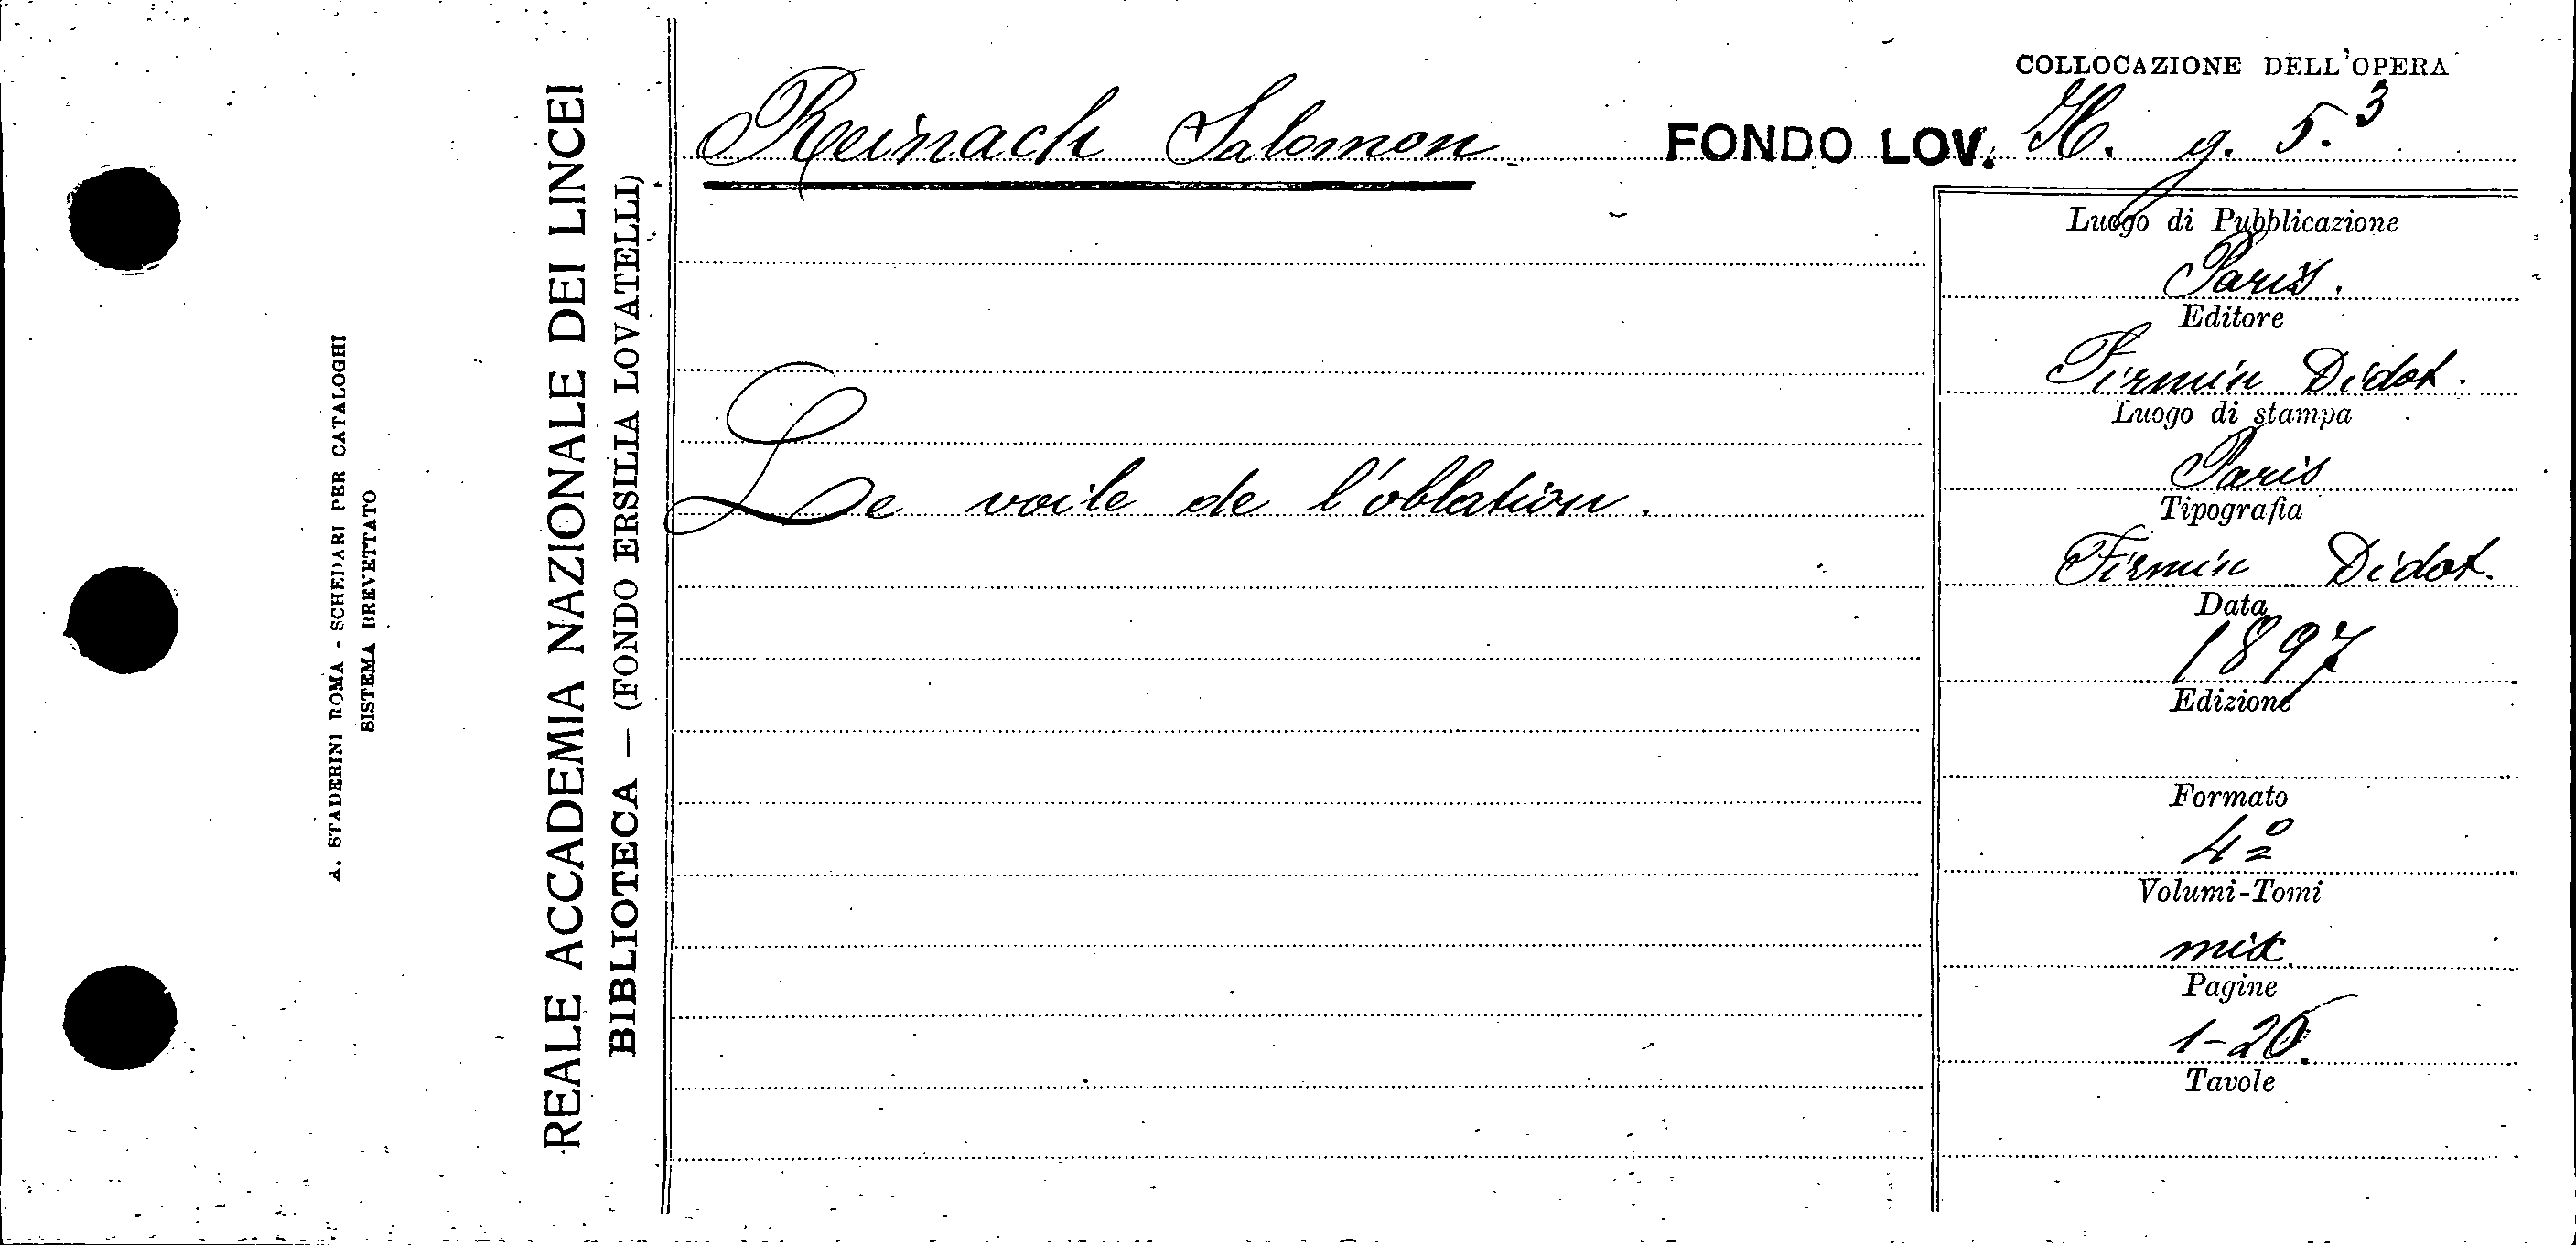 COLLOCAZIONE DELL'OPERA
Reinach Salomon FONDO LOV. H. g. 5.3
Le voile de l'oblation.
Luogo di Pubblicazione
Paris.
Editore
Firmin Didot.
Luogo di stampa
Paris
Tipografia
Firmin Didot.
Data
1897
Edizione
Formato
4º
Volumi-Tomi
Pagine
1-20.
Tavole
REALE ACCADEMIA NAZIONALE DEI LINCEI
BIBLIOTECA — (FONDO ERSILIA LOVATELLI)
A. STADERINI ROMA - SCHEDARI PER CATALOGHI
SISTEMA BREVETTATO